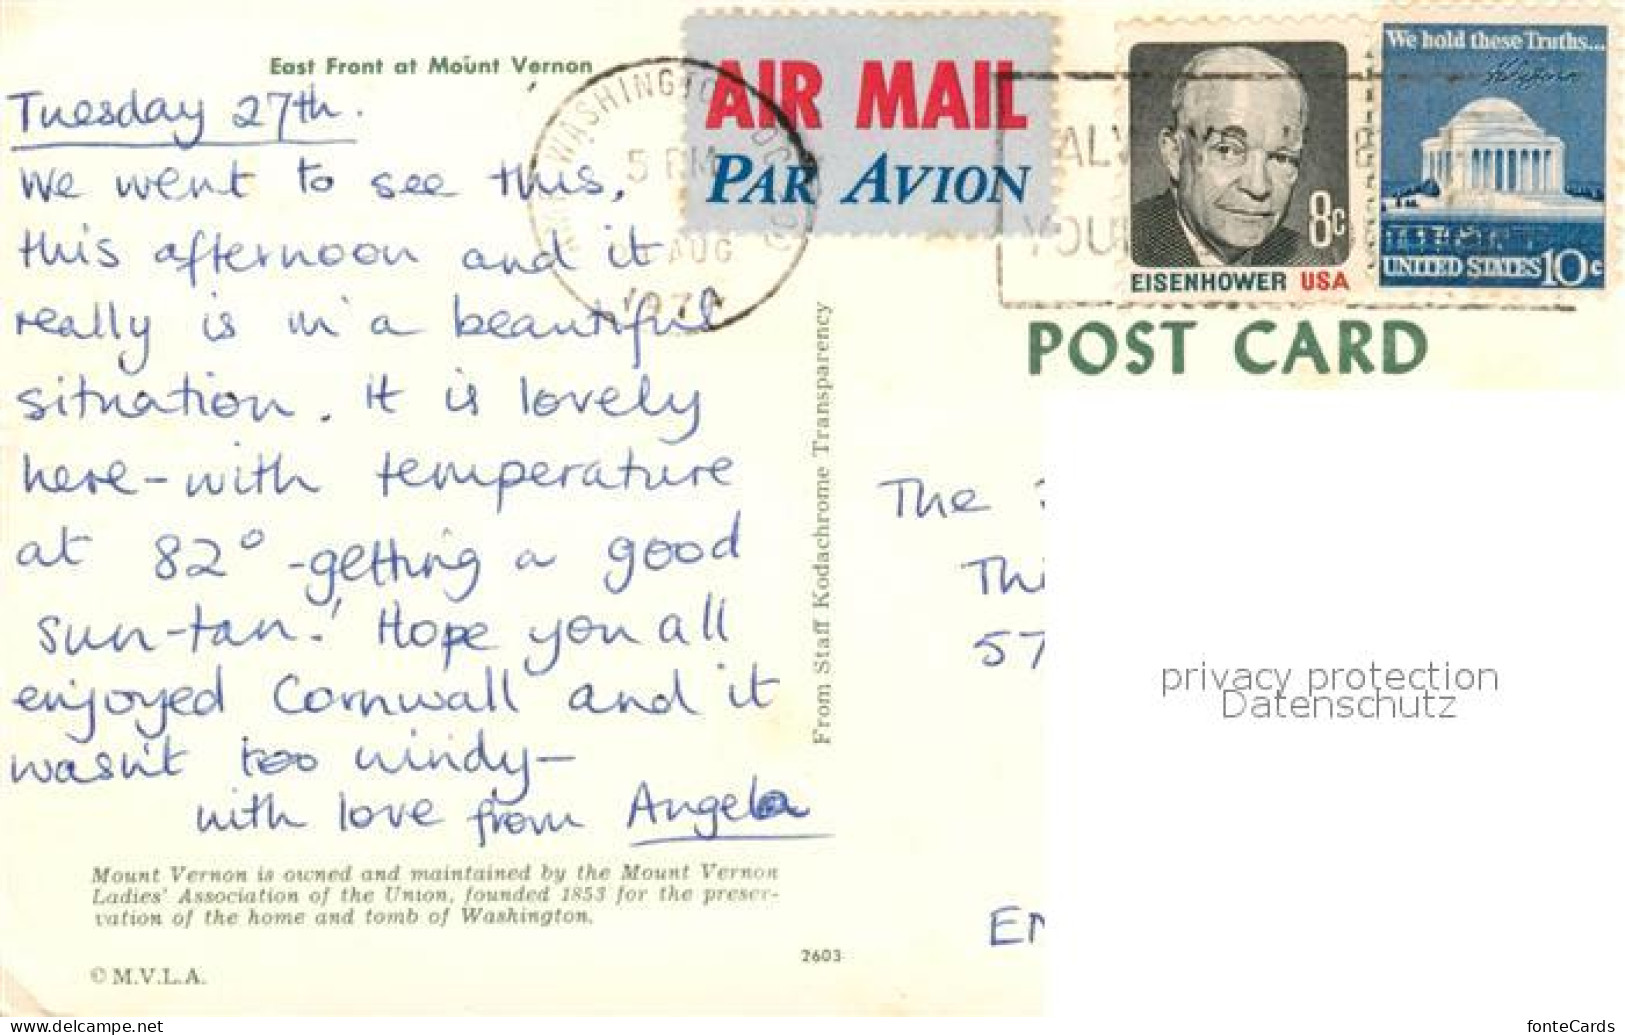 East Front at Mount Vernon
Tuesday 27th.
We went to see this,
this afternoon and it
really is in a beautiful
situation. It is lovely
here - with temperature
at 82° - getting a good
sun-tan! Hope you all
enjoyed Cornwall and it
wasn't too windy -
with love from Angela
Mount Vernon is owned and maintained by the Mount Vernon
Ladies' Association of the Union, founded 1853 for the preser-
vation of the home and tomb of Washington.
© M.V.L.A.
2603
From Staff Kodachrome Transparency
WASHINGTON DC
5 PM
AUG
AIR MAIL
PAR AVION
EISENHOWER USA
8c
We hold these Truths...
UNITED STATES 10c
POST CARD
The
57
privacy protection
Datenschutz
https://www.delcampe.net
fonteCards